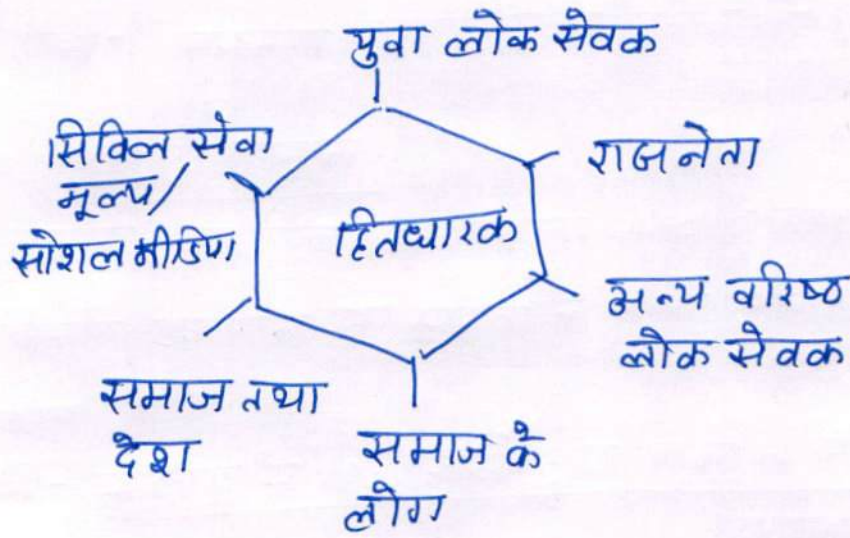 युवा लोक सेवक
राजनेता
अन्य वरिष्ठ
लोक सेवक
समाज के
लोग
समाज तथा
देश
सिविल सेवा
मूल्य/
सोशल मीडिया
हितधारक